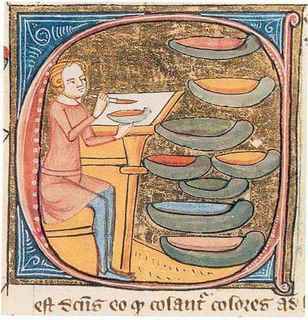 est dcũs eo qͥ colant᷑ colores ad